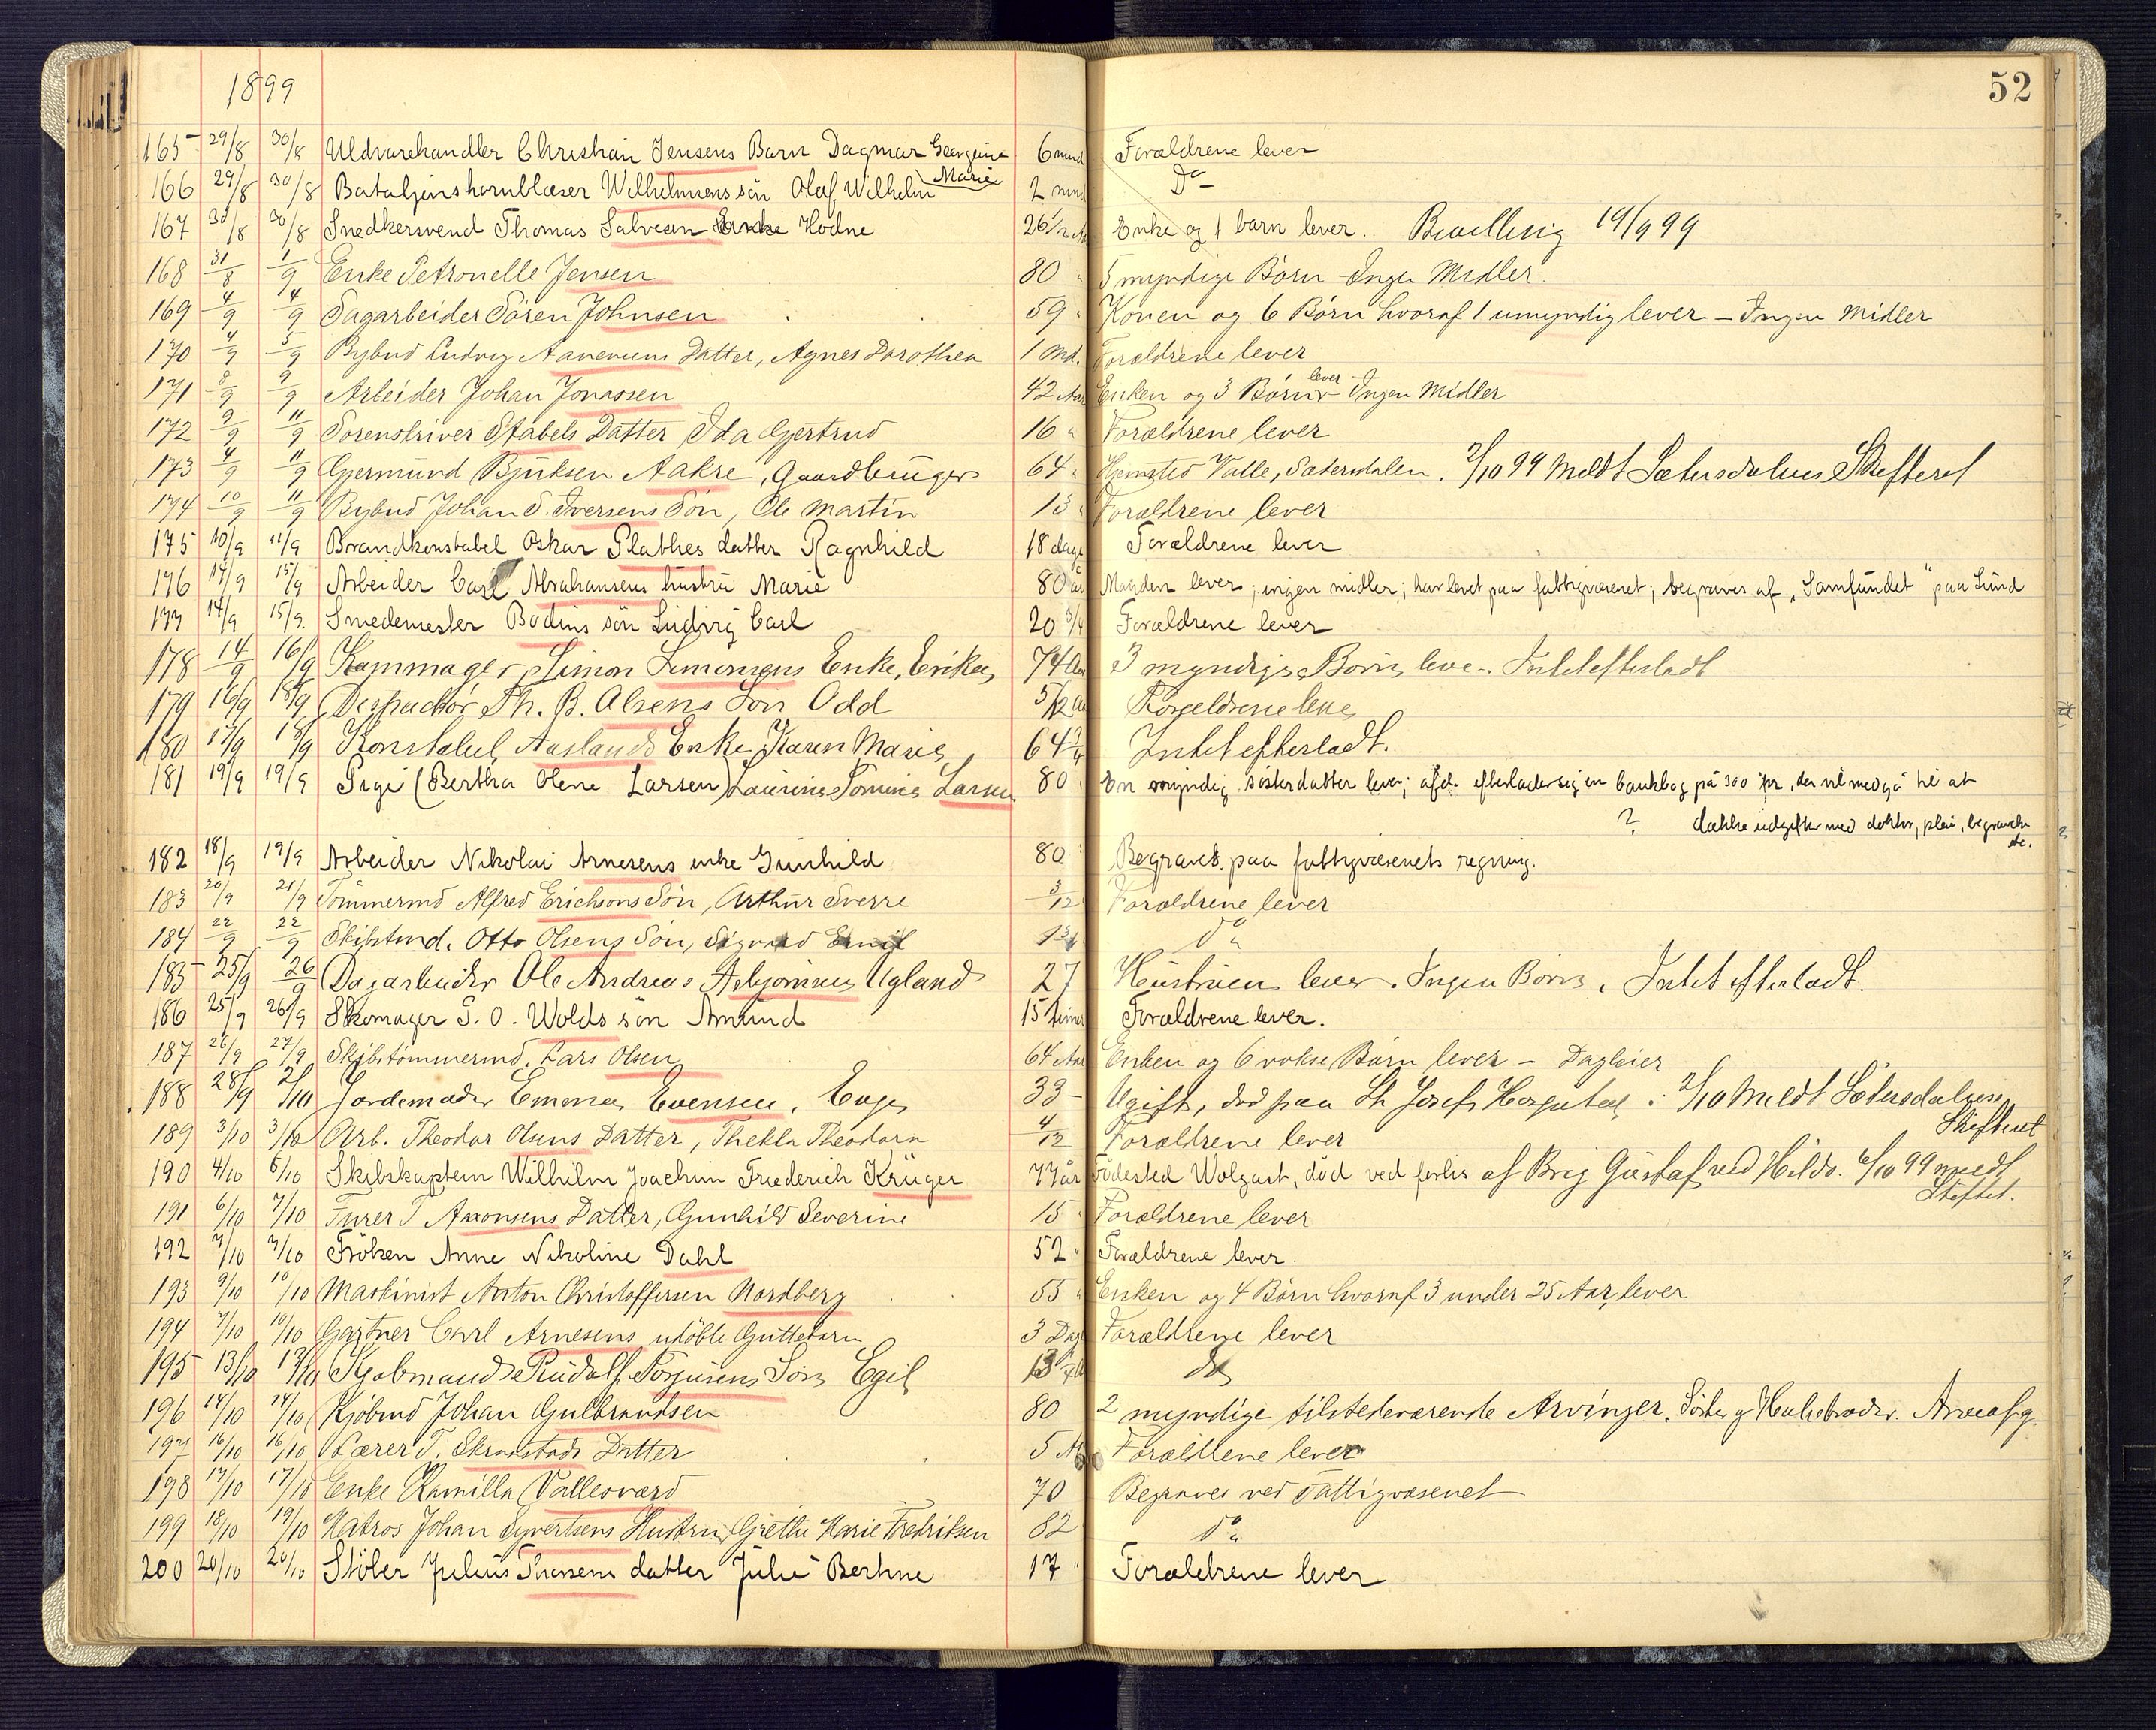 52
1899
165 29/8 30/8 Uldvarehandler Christian Jensens Barn Dagmar Georgine Marie 6 mnd Forældrene lever
166 29/8 30/8 Bataljonshornblæser Wilhelmsens sön Olaf Wilhelm 2 mnd Do
167 30/8 30/8 Snedkersvend Thomas Salvesen Hodne 26 1/2 Enke og 1 barn lever. Bevilling 19/9 99
168 31/8 1/9 Enke Petronelle Jensen 80 " 5 myndige Børn - Ingen Midler.
169 4/9 4/9 Sagarbeider Sören Johnsen 59 " Konen og 6 Børn hvoraf 1 umyndig lever - Ingen Midler
170 4/9 5/9 Bybud Ludvig Aanensens Datter, Agnes Dorothea 1 Md. Forældrene lever
171 8/9 9/9 Arbeider Johan Jonassen 42 Aar Enken og 3 Børn lever - Ingen Midler
172 9/9 11/9 Sorenskriver Stabels Datter Ida Gjertrud 16 " Forældrene lever
173 4/9 11/9 Gjermund Aakre, Gaardbruger 64 " Hjemsted Valle, Sætersdalen. 2/10 99 Meldt Sætersdalens Skifteret
174 10/9 11/9 Bybud Johan S. Iversens Sön, Ole Martin 13 " Forældrene lever
175 10/9 11/9 Brandkonstabel Oskar Plathes datter Ragnhild 18 dage Forældrene lever
176 14/9 15/9 Arbeider Carl Abrahamsens hustru Marie 80 år Manden lever; ingen midler; har levet paa fattigvæsenet; begraves af "Samfundet" paa Lund
177 14/9 15/9. Smedemester Bodins sön Ludvig Carl 20 3/4 Forældrene lever
178 14/9 16/9 Kammager Simon Simonsens Enke, Erika 74 Aar 3 myndige Børn leve. Intet efterladt
179 16/9 18/9 Despachör Th. B. Olsens Sön Odd 5/12 Aar Forældrene leve
180 17/9 18/9 Konstabel Aaslands Enke Karen Marie 64 Intet efterladt.
181 19/9 19/9 Pige (Bertha Olene Larsen) Larsen 80 " En myndig søsterdatter lever; afd. efterlader sig en bankbog på 300 kr, der vil medgå til at
? dække udgifter med doktor, pleie, begravelse etc.
182 18/9 19/9 Arbeider Nikolai Arnesens enke Gunhild 80 " Begraves paa fattigvæsenets regning.
183 20/9 21/9 Tömmermd Alfred Erichsens Sön, Arthur Sverre 3/12 Forældrene lever
184 22/9 22/9 Skibstmd. Otto Olsens Sön, Sigvard Do "
185 25/9 26/9 Dagarbeider Ole Andreas Asbjörnsen Ugland 27 Hustruen lever. Ingen Børn, Intet efterladt.
186 25/9 26/9 Skomager S. O. Wolds sön Amund 15 timer Forældrene lever.
187 26/9 27/9 Skibstömmermd. Lars Olsen 64 Aar Enken og 6 voksne Børn lever - Dagleier
188 28/9 2/10 Jordemoder Emma Evensen, Evje 33 - Ugift, død paa St Josefs Hospital. 2/10 Meldt Sætersdalens Skifteret
189 3/10 3/10 Arb. Theodor Olsens Datter, Thekla Theodora 4/12 Forældrene lever
190 4/10 5/10 Skibskaptein Wilhelm Joachim Friederich Krüger 77 år Fødested Wolgast, död ved forlis af Brig Gustaf ved 6/10 99 meldt Skiftet.
191 6/10 7/10 Furer T Aanonsens Datter, Gunhild Severine 15 " Forældrene lever
192 7/10 7/10 Fröken Anne Nikoline Dahl 52 " Forældrene lever.
193 9/10 10/10 Maskinist Anton Christoffersen Nordberg 55 " Enken og 4 Børn hvoraf 3 under 25 Aar, lever
194 7/10 10/10 Gartner Carl Arnesens udöbte Guttebarn 3 Dage Forældrene lever
195 13/10 13/10 Kjøbmand Rudolf Torjusens Sön Egil Do
196 14/10 14/10 Kjöbmd Johan Gulbrandsen 80 2 myndige tilstedeværende Arvinger, Søster og Halvbroder.
197 16/10 16/10 Lærer T. Skraastads Datter 5 Forældrene lever
198 17/10 17/10 Enke Kamilla Vallesværd 70 Begraves ved Fattigvæsenet
199 18/10 19/10 Matros Johan Syvertsens Hustru, Grethe Marie Fredriksen 82 Do "
200 20/10 20/10 Stöber Julius datter Julie Berthine 17 " Forældrene lever